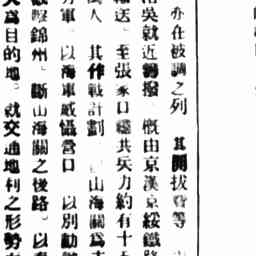 亦在被調之列　其開拔費等
洛吳就近調撥　概由京漢京綏鐵路
輸送　至張家口　總共兵力約有十五
萬人　其作戰計劃　山海關爲
軍　以海軍威懾營口　以別動
擊錦州　斷山海關之後路　以
爲目的地　就交通地利之形勢